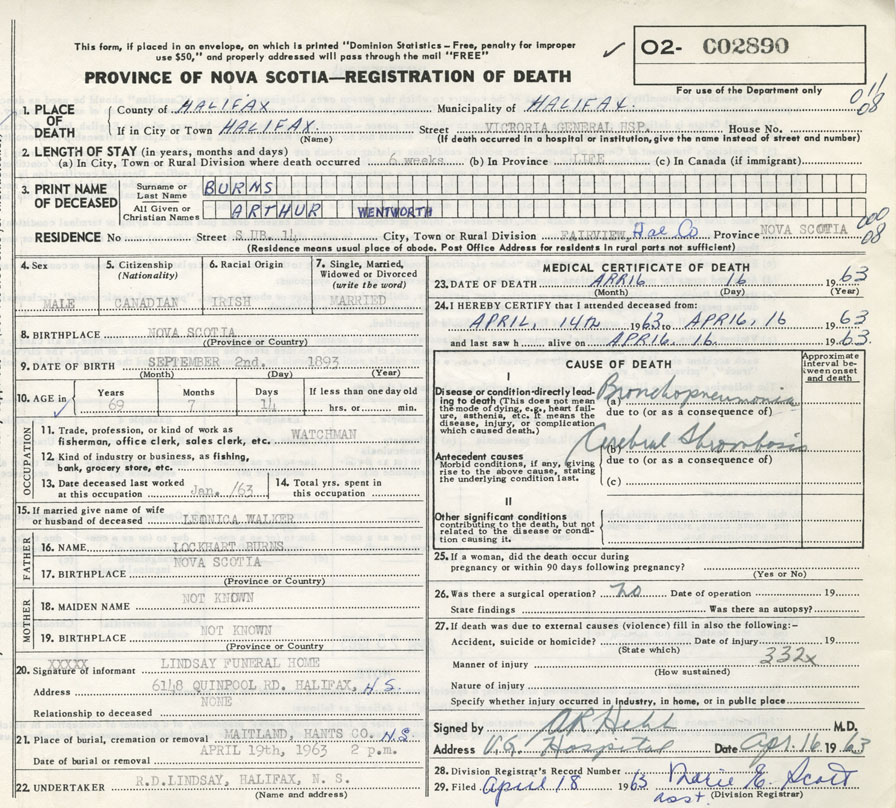 This form, if placed in an envelope, on which is printed "Dominion Statistics – Free, penalty for improper
use $50," and properly addressed will pass through the mail "FREE"
✓ O2- C02890
PROVINCE OF NOVA SCOTIA—REGISTRATION OF DEATH
For use of the Department only
011
08
1. PLACE OF DEATH
County of HALIFAX Municipality of HALIFAX.
If in City or Town HALIFAX. Street VICTORIA GENERAL HSP. House No.
(Name) (If death occurred in a hospital or institution, give the name instead of street and number)
2. LENGTH OF STAY (in years, months and days)
(a) In City, Town or Rural Division where death occurred 6 weeks (b) In Province LIFE (c) In Canada (if immigrant)
3. PRINT NAME OF DECEASED
Surname or Last Name BURNS
All Given or Christian Names ARTHUR WENTWORTH
RESIDENCE No Street S UB. 14 City, Town or Rural Division FAIRVIEW, Hal Co Province NOVA SCOTIA
000
08
(Residence means usual place of abode. Post Office Address for residents in rural parts not sufficient)
4. Sex
MALE
5. Citizenship
(Nationality)
CANADIAN
6. Racial Origin
IRISH
7. Single, Married,
Widowed or Divorced
(write the word)
MARRIED
8. BIRTHPLACE NOVA SCOTIA
((Province or Country)
9. DATE OF BIRTH SEPTEMBER 2nd. 1893
(Month) (Day) (Year)
10. AGE in ✓
Years 69
Months 7
Days 14
If less than one day old
hrs. or min.
OCCUPATION
11. Trade, profession, or kind of work as
fisherman, office clerk, sales clerk, etc. WATCHMAN
12. Kind of industry or business, as fishing,
bank, grocery store, etc.
13. Date deceased last worked
at this occupation Jan. /63
14. Total yrs. spent in
this occupation
15. If married give name of wife
or husband of deceased LEONICA WALKER
FATHER
16. NAME LOCKHART BURNS
17. BIRTHPLACE NOVA SCOTIA
(Province or Country)
MOTHER
18. MAIDEN NAME NOT KNOWN
19. BIRTHPLACE NOT KNOWN
(Province or Country
20. Signature of informant XXXXX LINDSAY FUNERAL HOME
Address 6148 QUINPOOL RD. HALIFAX, N.S.
Relationship to deceased NONE
21. Place of burial, cremation or removal MAITLAND, HANTS CO. N.S.
Date of burial or removal APRIL 19th, 1963 2 p.m.
22. UNDERTAKER R.D.LINDSAY, HALIFAX, N. S.
(Name and address)
MEDICAL CERTIFICATE OF DEATH
23. DATE OF DEATH APR16 16 1963
(Month) (Day) (Year)
24. I HEREBY CERTIFY that I attended deceased from:
APRIL, 14th 1963 to APR16, 16 1963
and last saw h alive on APR16. 16. 1963.
CAUSE OF DEATH
Approximate
interval between onset
and death
I
Disease or condition directly leading to death (This does not mean
the mode of dying, e.g., heart failure, asthenia, etc. It means the
disease, injury, or complication
which caused death.)
(a) Bronchopneumonia
due to (or as a consequence of)
Antecedent causes
Morbid conditions, if any, giving
rise to the above cause, stating
the underlying condition last.
(b) Cerebral Thrombosis
due to (or as a consequence of)
(c)
II
Other significant conditions
contributing to the death, but not
related to the disease or condition causing it.
25. If a woman, did the death occur during
pregnancy or within 90 days following pregnancy?
(Yes or No)
26. Was there a surgical operation? No Date of operation 19
State findings Was there an autopsy?
27. If death was due to external causes (violence) fill in also the following:–
Accident, suicide or homicide? Date of injury 19
(State which)
332x
Manner of injury
(How sustained)
Nature of injury
Specify whether injury occurred in industry, in home, or in public place
Signed by A R Hebb M.D.
Address V.G. Hospital Date Apr. 16 1963
28. Division Registrar's Record Number
29. Filed April 18 1963 Marie E. Scott
asst (Division Registrar)